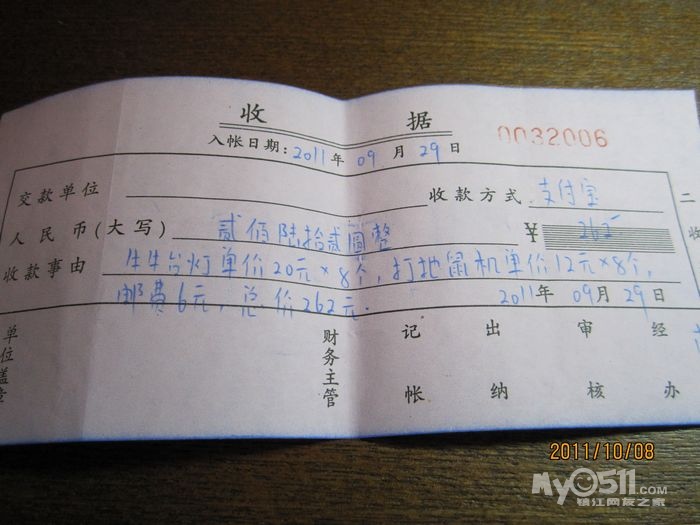 收 据
0032006
入帐日期：2011年 09月 29日
交款单位 收款方式 支付宝
人民币(大写) 贰佰陆拾贰圆整 ¥ 262
收款事由 牛牛台灯单价20元×8个，打地鼠机单价12元×8个，
邮费6元，总价262元. 2011年 09月 29日
二
收
单位盖章 财务主管 记帐 出纳 审核 经办
2011/10/08
My0511.com
镇江网友之家